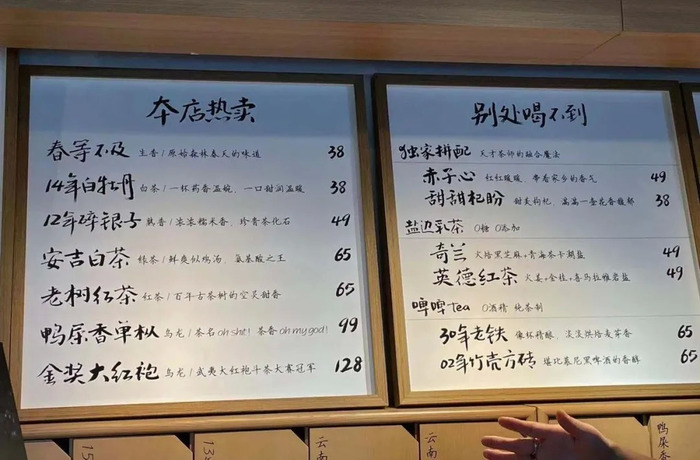 本店热卖
春等不及 生普/原始森林春天的味道 38
14年白牡丹 白茶/一杯药香温婉，一口甜润温暖 38
12年碎银子 熟普/浓浓糯米香，珍贵茶化石 49
安吉白茶 绿茶/鲜爽似鸡汤，氨基酸之王 65
老树红茶 红茶/百年古茶树的空灵甜香 65
鸭屎香单枞 乌龙/茶名oh shit! 茶香oh my god! 99
金奖大红袍 乌龙/武夷大红袍斗茶大赛冠军 128
别处喝不到
独家拼配 天才茶师的融合魔法
赤子心 红红暖暖 带着家乡的香气 49
甜甜杞盼 甜美枸杞，盏盏一壶花香馥郁 38
盐边乳茶 0糖 0添加
奇兰 火焙黑芝麻,青海茶卡湖盐 49
英德红茶 火姜,金桂,喜马拉雅岩盐 49
啤啤tea 0酒精 纯茶制
30年老铁 像杯精酿，淡淡烘焙麦芽香 65
02年竹壳方砖 媲比慕尼黑啤酒的香醇 65
云南
云南
鸭屎香